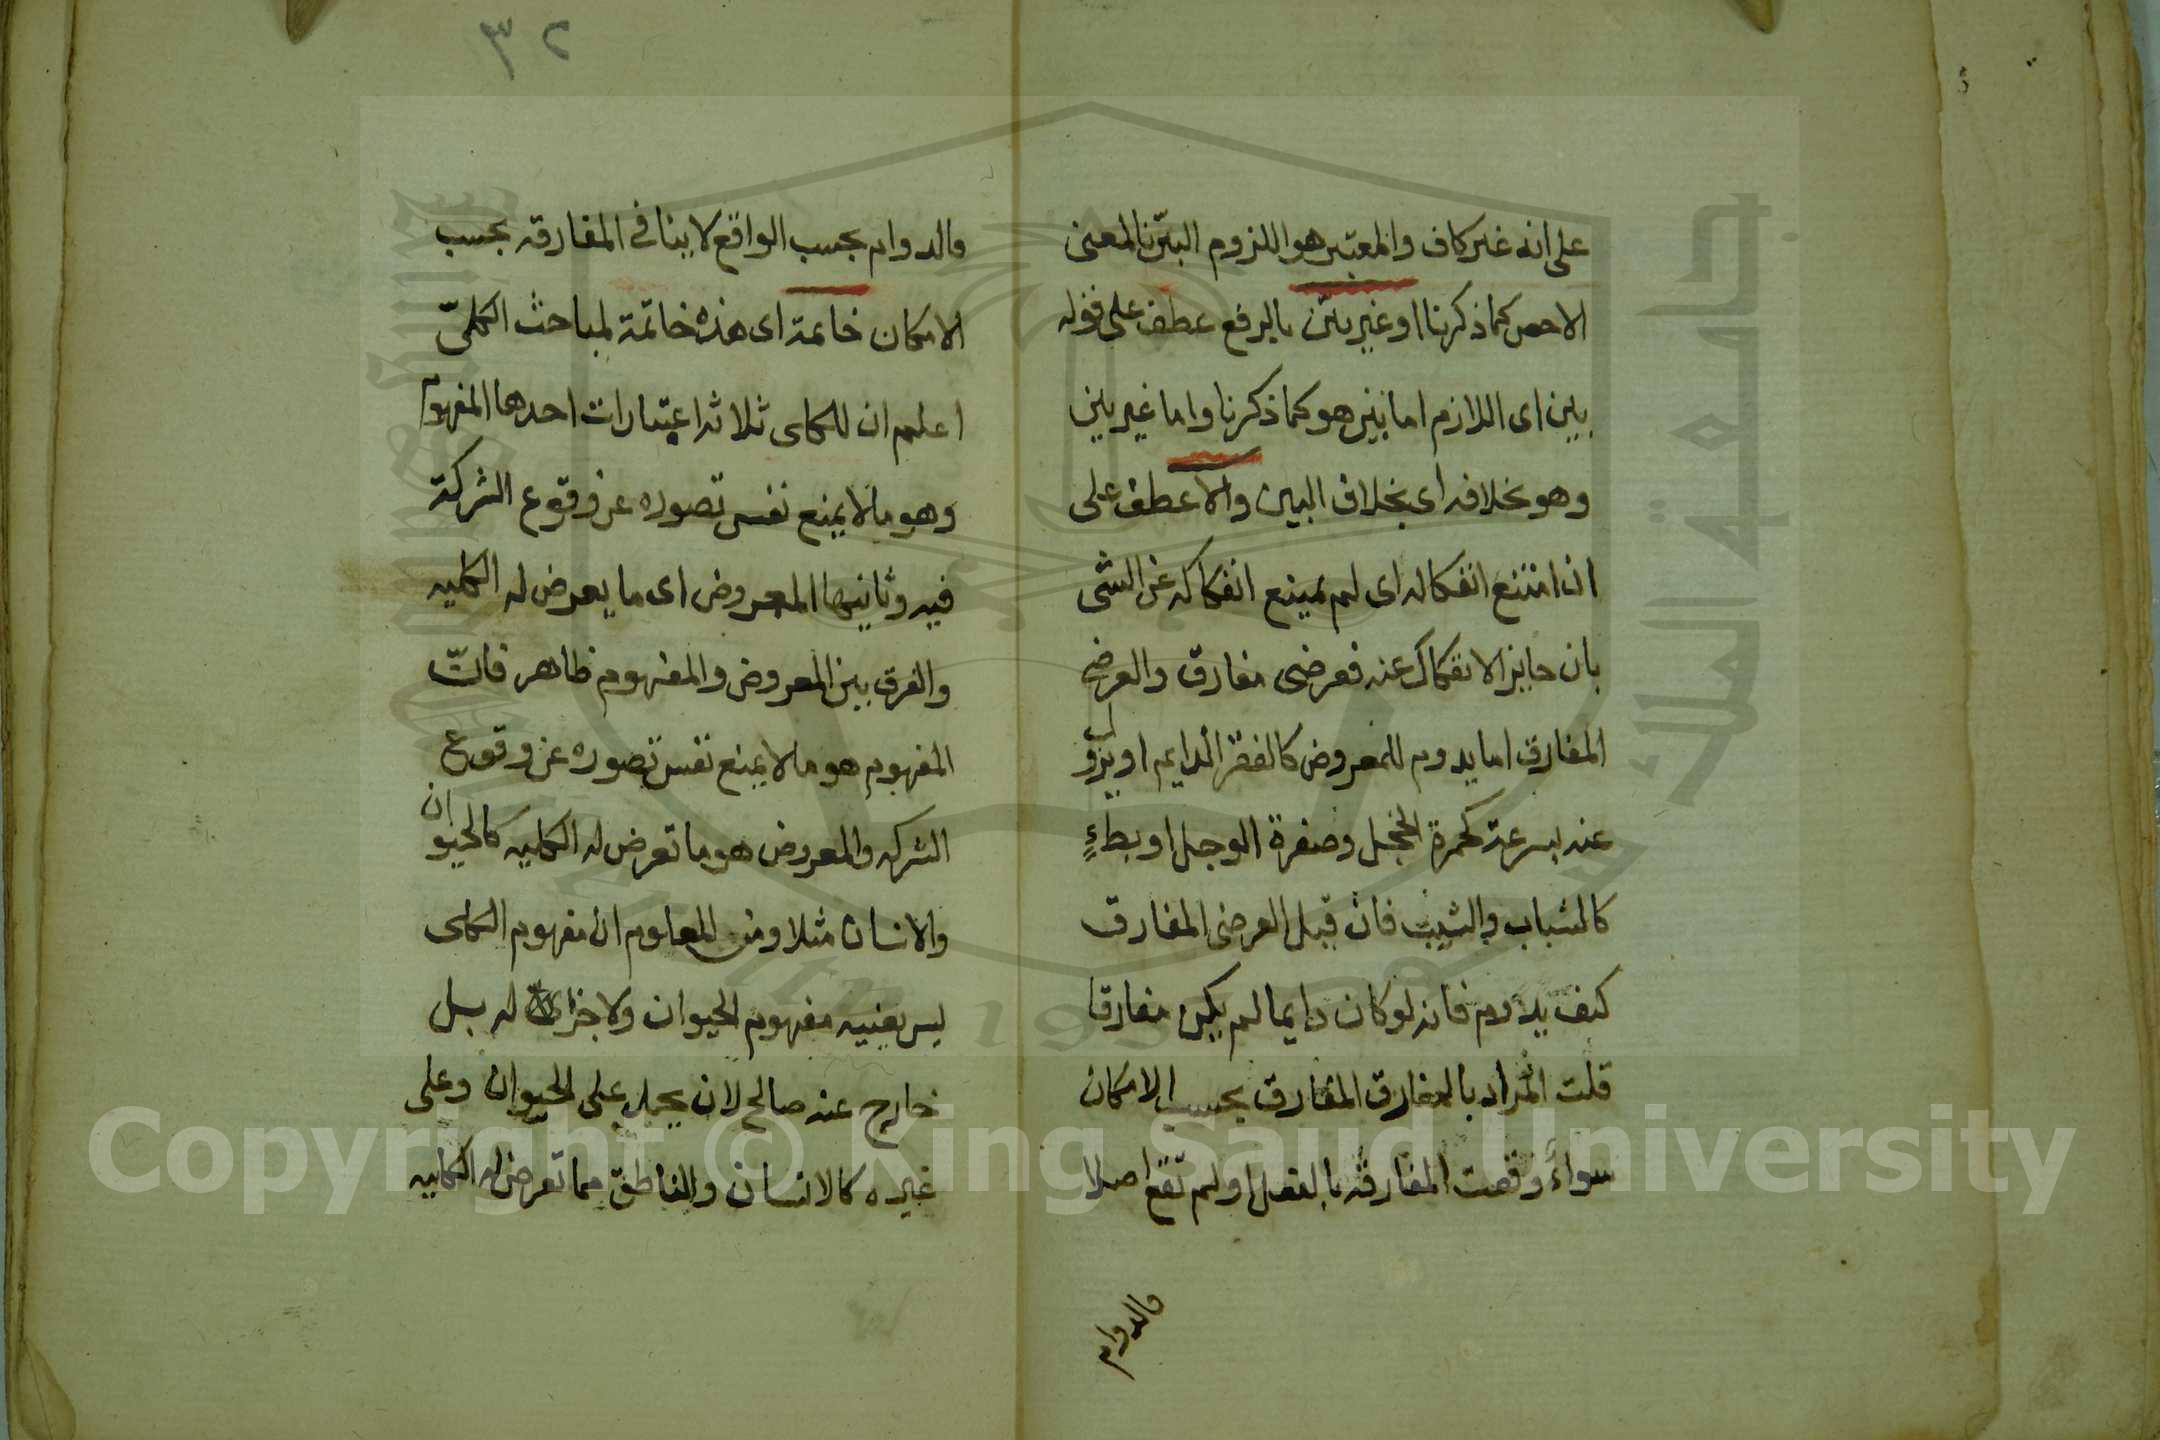 على انه غير كاف والمعتبر هو اللزوم البيّن بالمعنى
الاخص كما ذكرنا او غير بيّن بالرفع عطف على قوله
بين اى اللازم اما بين هو كما ذكرنا واما غير بين
وهو بخلافه اى بخلاف البين والا عطف على
ان امتنع انفكاكه اى لم يمتنع انفكاكه عن الشى
بان جايز الانفكاك عنه فعرضى مفارق والعرضى
المفارق اما يدوم للمعروض كالفقر الدايم او يزول
عنه بسرعة كحمرة الخجل وصفرة الوجل او بطاءٍ
كالشباب والشيب فان قيل العرضى المفارق
كيف يلاوم فانه لو كان دايما لم يكن مفارقا
قلت المراد بالمفارق المفارق بحسب الامكان
سواءً وقعت المفارقة بالفعل او لم تقع اصلا
والدوام
٣٢
والدوام بحسب الواقع لا ينافى المفارقه بحسب
الامكان خاتمة اى هذه خاتمة لمباحث الكلىّ
اعلم ان للكلى ثلاثه اعتبارات احدها المفهوم
وهو مالا يمنع نفس تصوره عن وقوع الشركة
فيه وثانيها المعروض اى ما يعرض له الكليه
والفرق بين المعروض والمفهوم ظاهر فانّ
المفهوم هو مالا يمنع نفس تصوره عن وقوع
الشركه والمعروض هو ما تعرض له الكليه كالحيوان
والانسان مثلا ومن المعلوم ان مفهوم الكلى
ليس بعينيه مفهوم الحيوان ولا جزاى له بل
خارج عنه صالح لان يحمل على الحيوان وعلى
غيره كالانسان والناطق مما تعرض له الكليه
جامعة الملك سعود
Copyright © King Saud University
1957